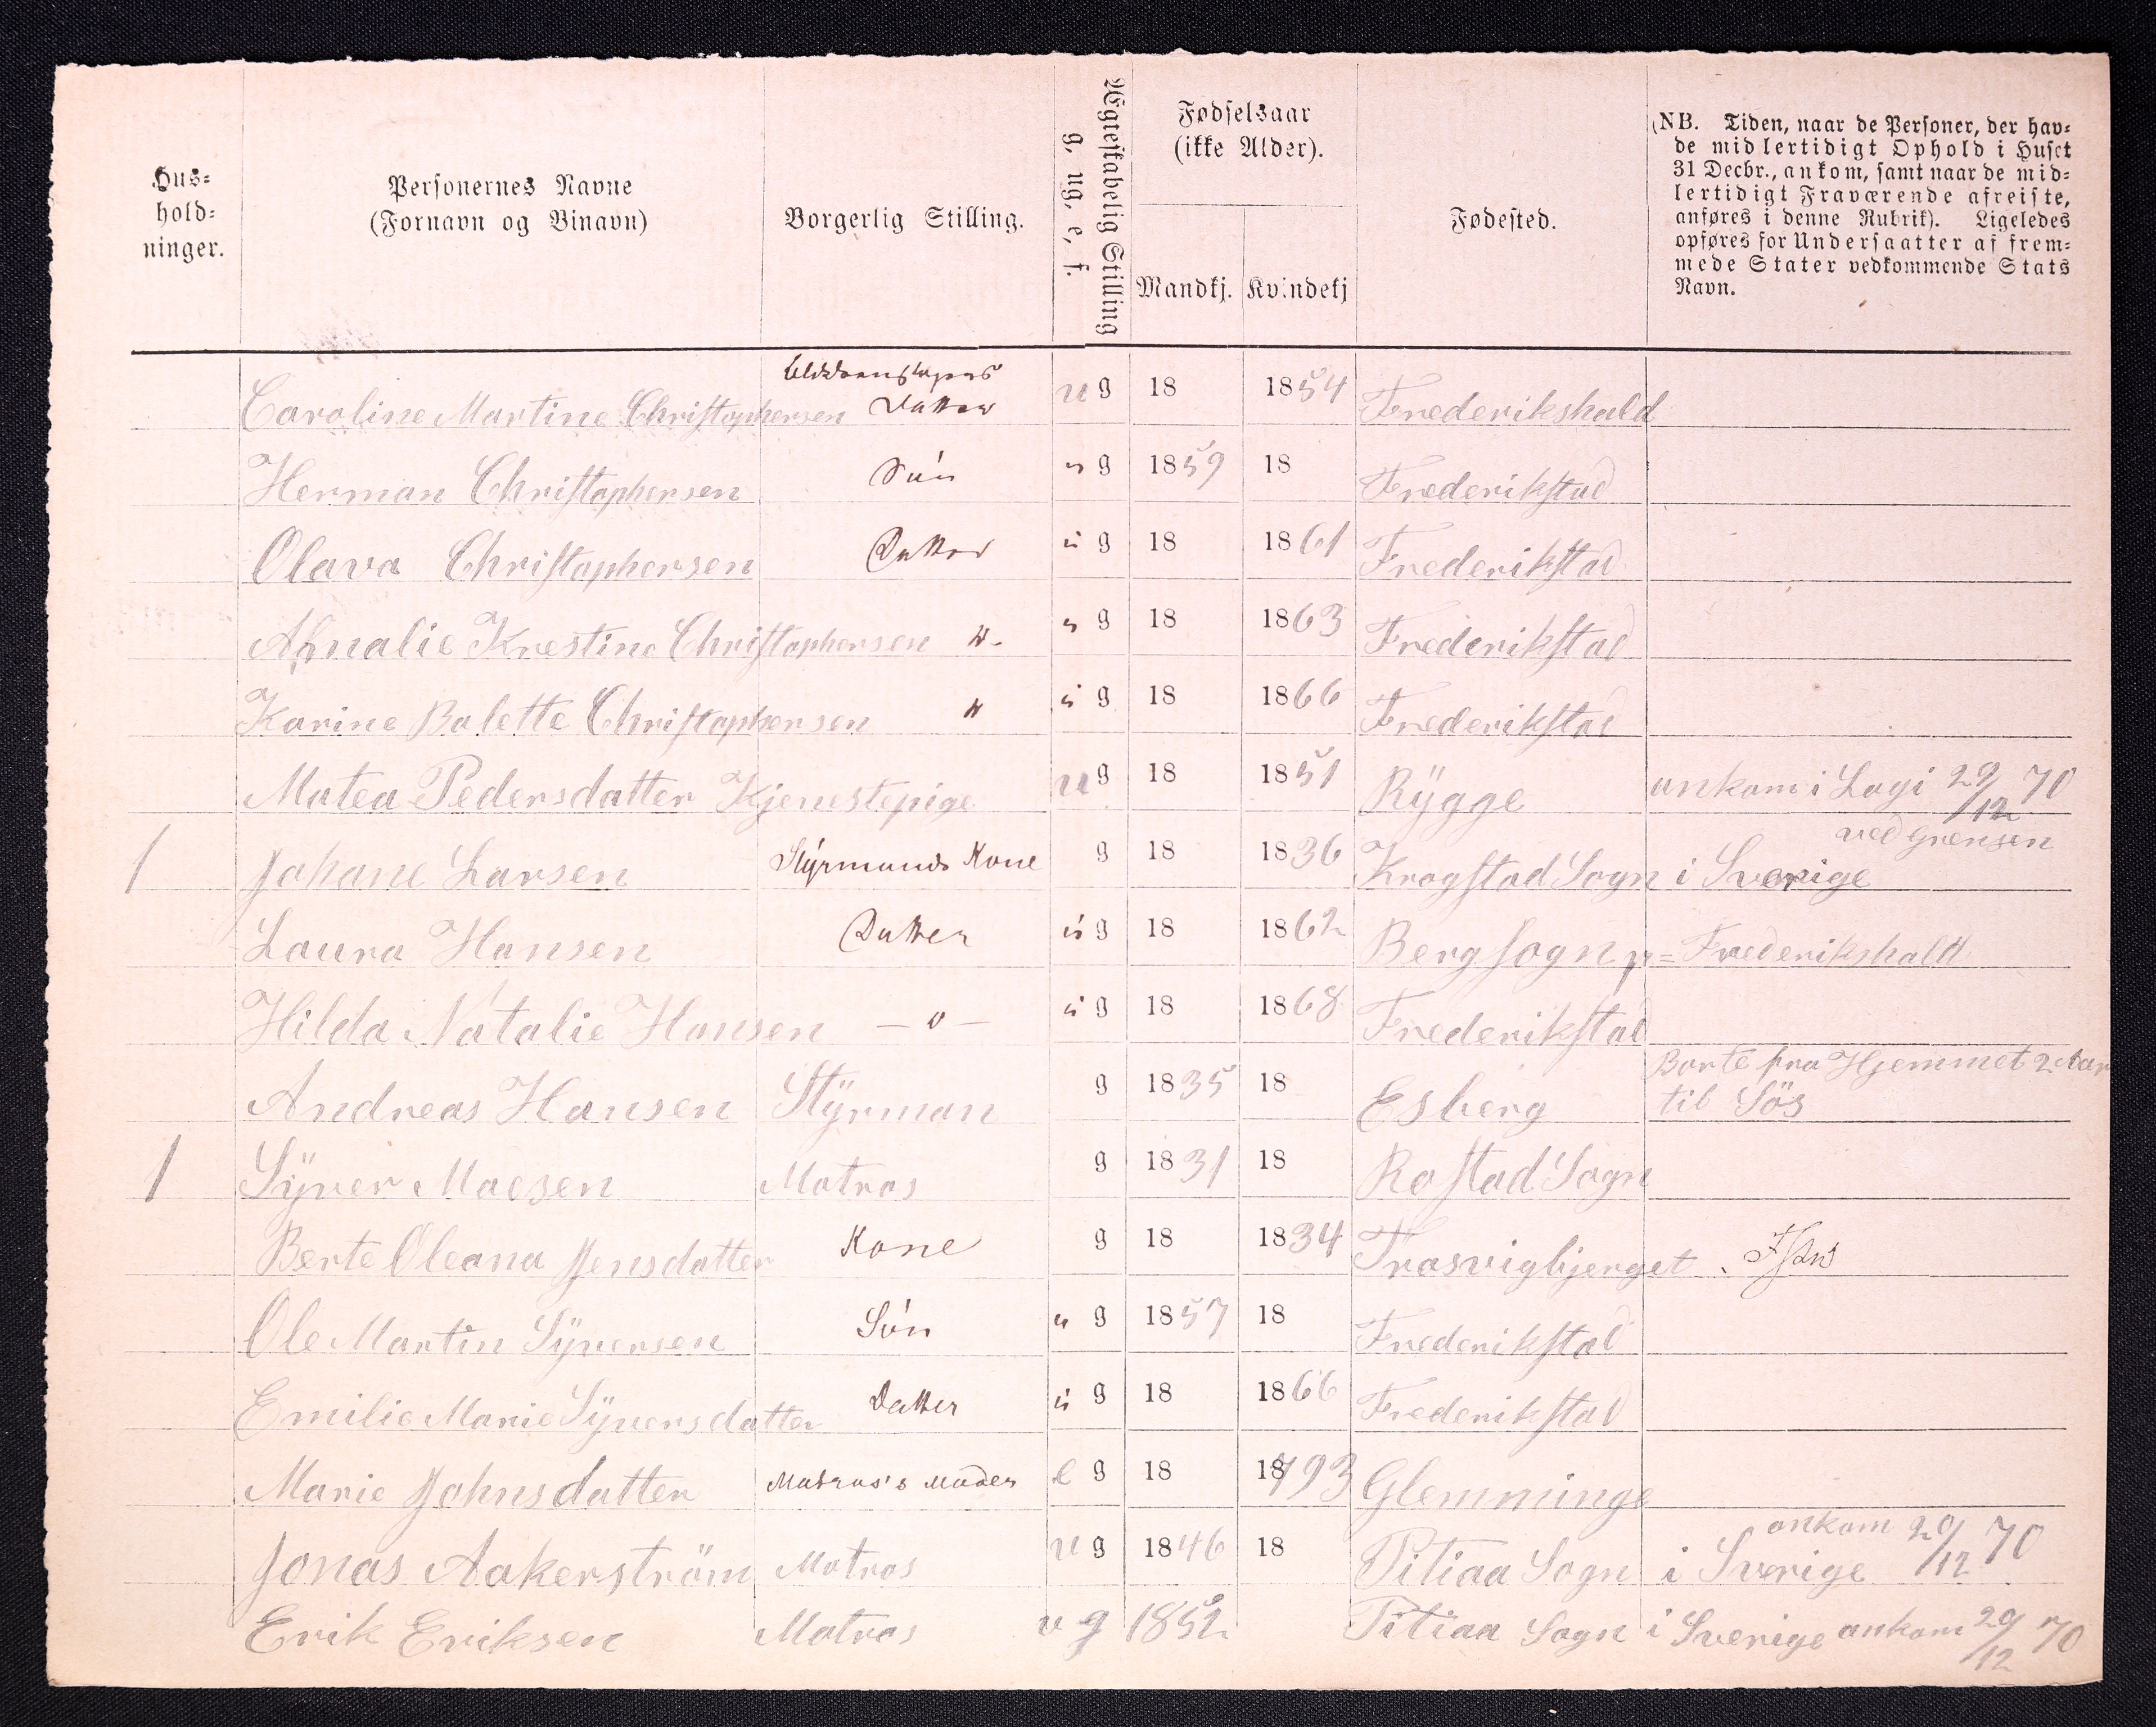 Hus-
hold-
ninger.
Personernes Navne
(Fornavn og Binavn)
Borgerlig Stilling.
Ægteskabelig Stilling
g. ug. e. f.
Fødselsaar
(ikke Alder).
Mandkj. Kvindekj
Fødested.
(NB. Tiden, naar de Personer, der hav-
de midlertidigt Ophold i Huset
31 Decbr., ankom, samt naar de mid-
lertidigt Fraværende afreiste,
anføres i denne Rubrik). Ligeledes
opføres for Undersaatter af frem-
mede Stater vedkommende Stats
Navn.
Caroline Martine Christophersen Datter u g 18 1854 Frederikshald
Herman Christophersen Søn u g 1859 18 Frederikstad
Olava Christophersen Datter u g 18 1861 Frederikstad
Amalie Krestine Christophersen " u g 18 1863 Frederikstad
Karine Bolette Christophersen " u g 18 1866 Frederikstad
Matea Pedersdatter Kjenestepige u g 18 1851 Rÿgge ankom i Logi 29/12 70
ved Grensen
1 Johane Larsen Stÿrmands Kone g 18 1836 Krogstad Sogn i Sverige
Laura Hansen Datter u g 18 1862 Berg Sogn pr= Frederikshald
Hilda Natalie Hansen — o — u g 18 1868 Frederikstad
Borte fra Hjemmet 2 Aar
Andreas Hansen Stÿrman g 1835 18 Esberg til Søs
1 Sÿver Maesen Matros g 1831 18 Rostad Sogn
Berte Oleana Jensdatter Kone g 18 1834 Trosvigbjerget
Ole Martin Sÿversen Søn u g 1857 18 Frederikstad
Emilie Marie Sÿversdatter Datter u g 18 1866 Frederikstad
Marie Johnsdatter Matros's Moder e g 18 1793 Glemminge
ankom 29/12 70
Jonas Aakerström Matros u g 1846 18 Pitiaa Sogn i Sverige
Erik Eriksen Matros u g 1852 Pitiaa Sogn i Sverige ankom 29/12 70